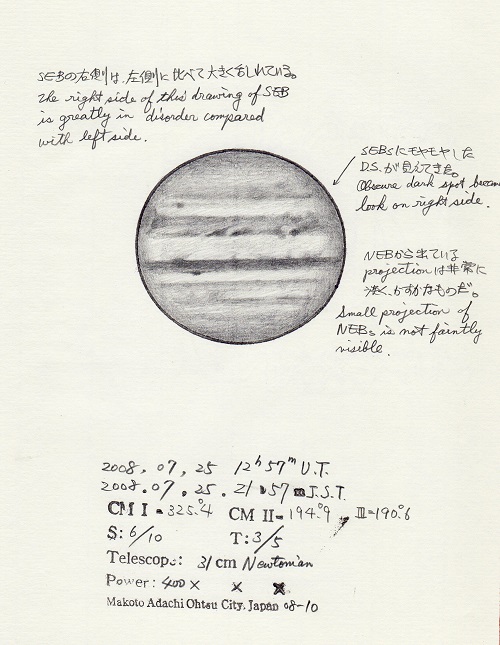 SEBの右側は、左側に比べて大きく乱れている。
The right side of this drawing of SEB
is greatly in disorder compared
with left side.
SEBsにモヤモヤした
D.S.が見えてきた。
Obscure dark spot became
look on right side.
NEBから出ている
projectionは非常に
淡く、かすかなものだ。
Small projection of
NEBs is not faintly
visible.
2008, 07, 25 12h 57m U.T.
2008.07.25. 21 57 J.S.T.
CM I = 325.°4 CM II = 194.°9 III = 190.°6
S: 6/10 T: 3/5
Telescope: 31 cm Newtonian
Power: 400 × × ×
Makoto Adachi Ohtsu City. Japan 08-10